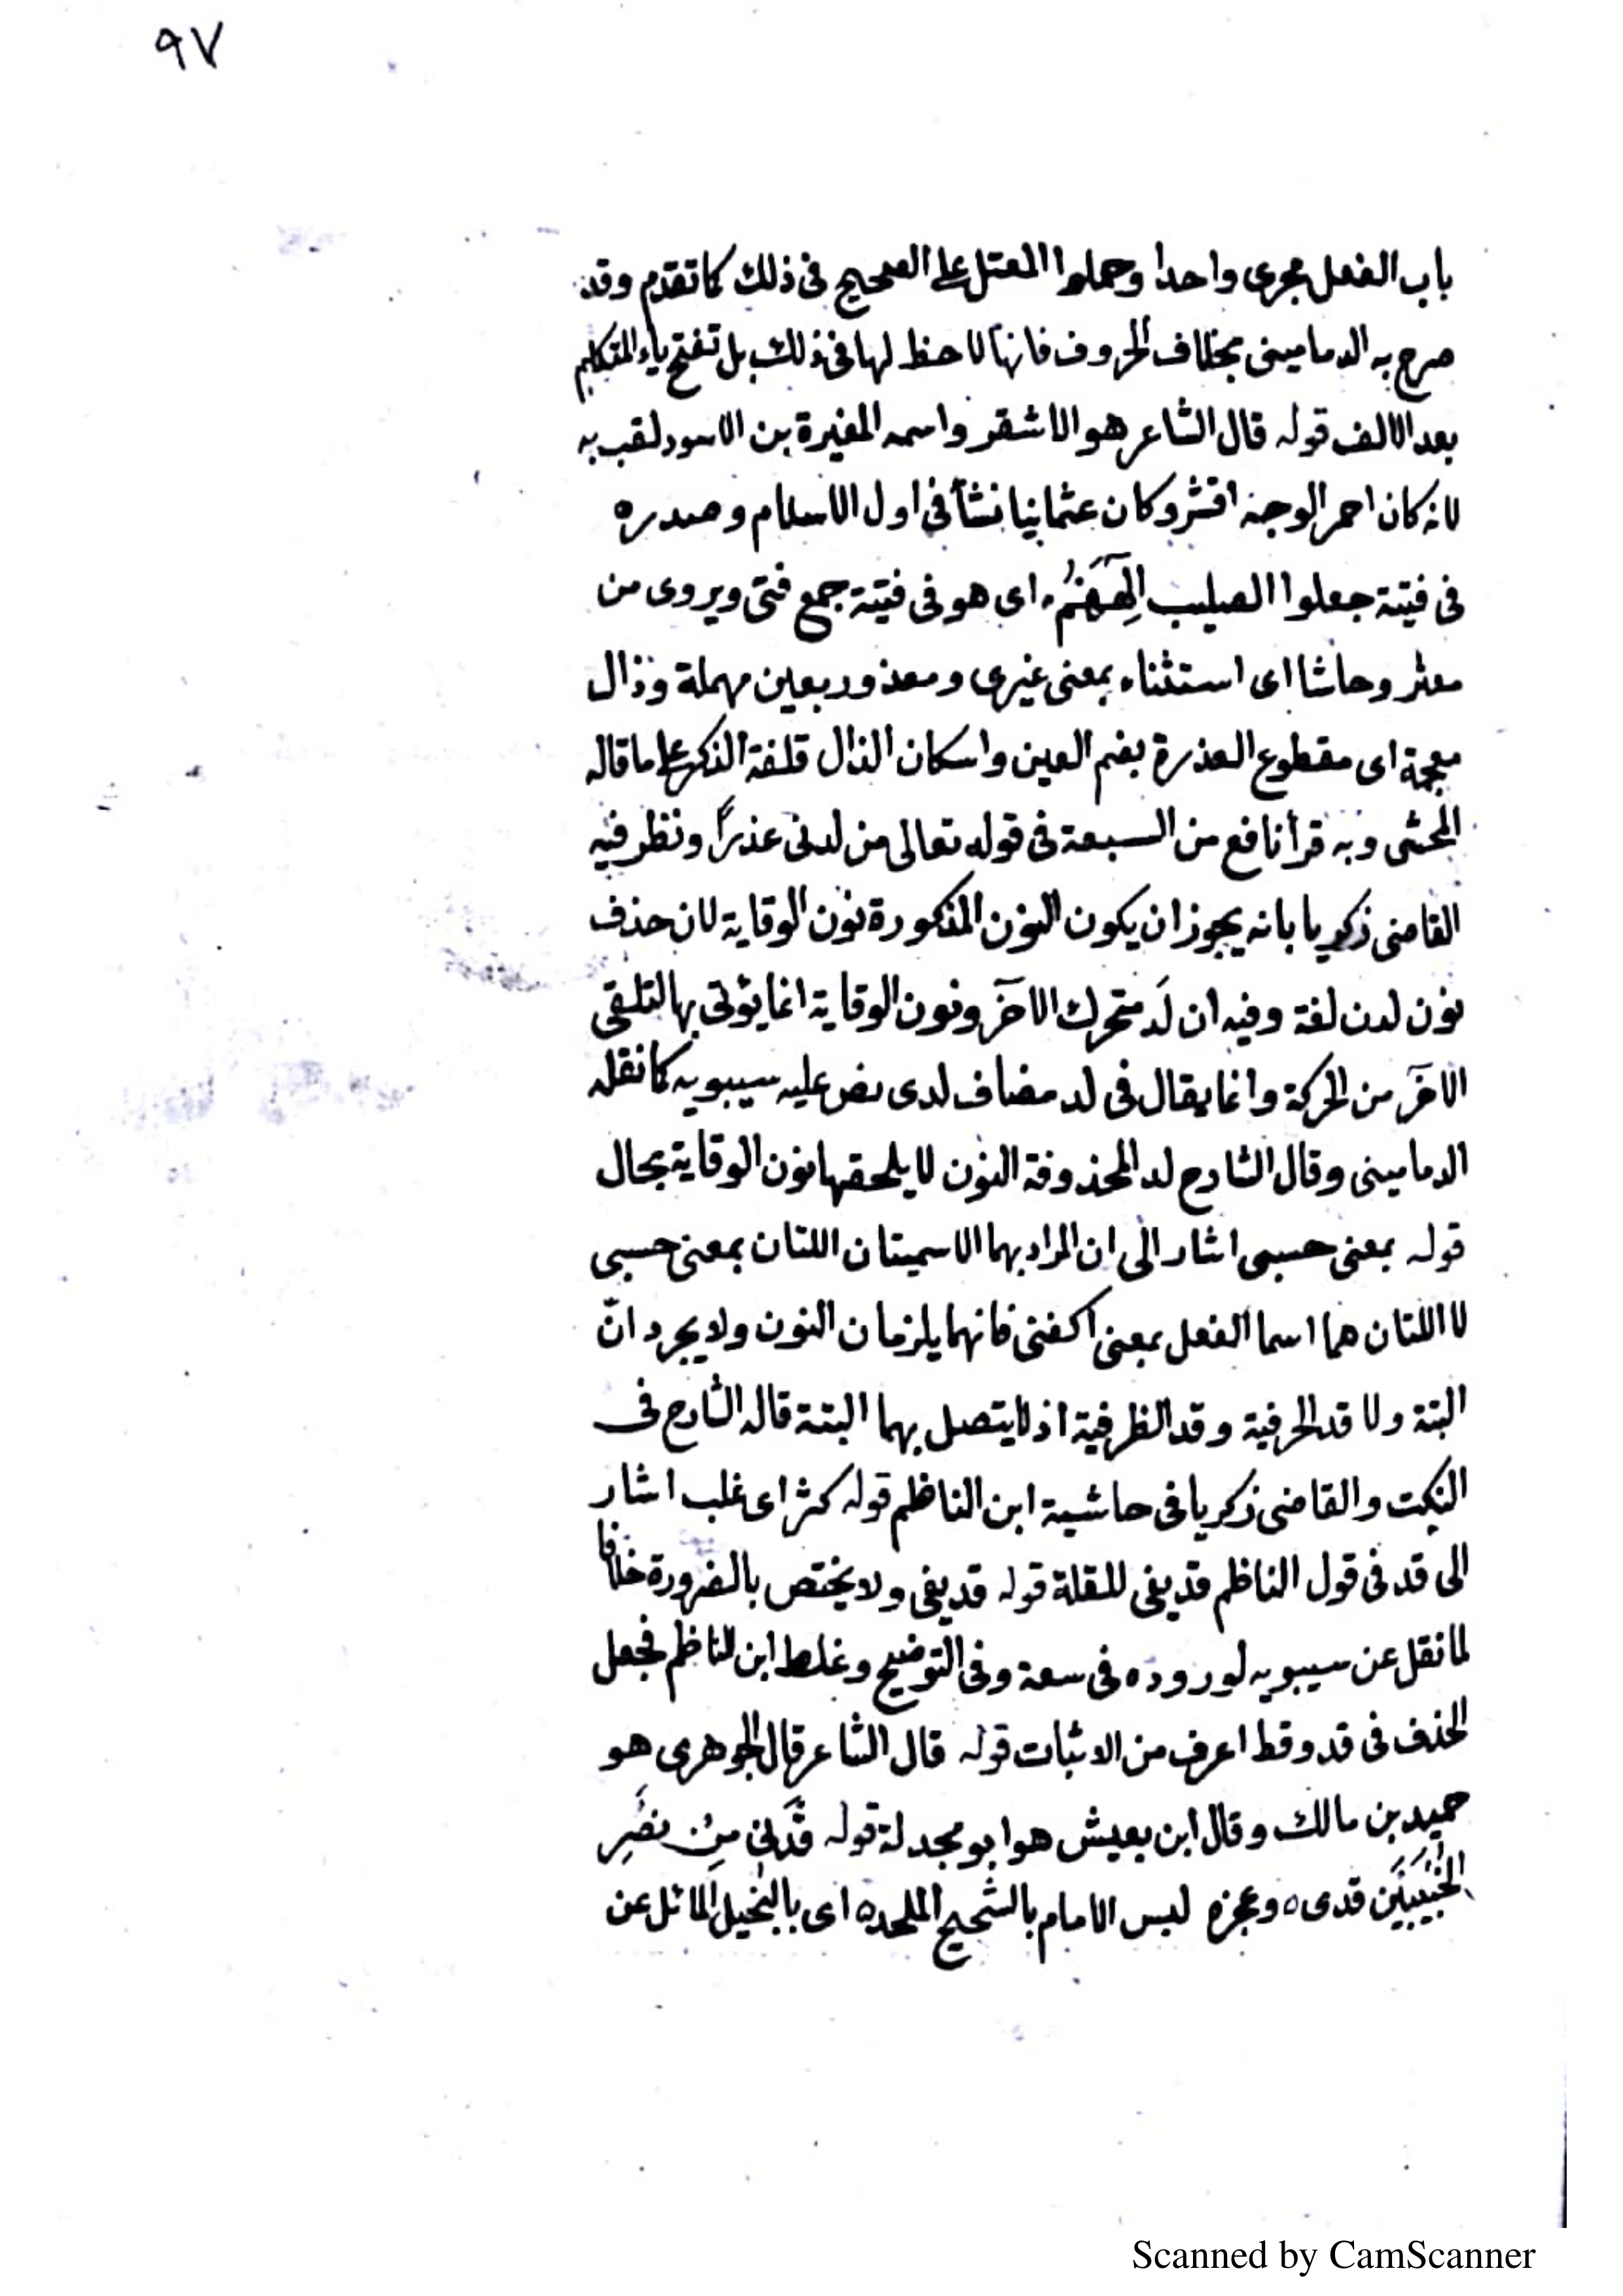 ٩٧
باب الفعل مجرى واحدا وحملوا المعتل على الصحيح فى ذلك كما تقدم وقد
صرح به الدمامينى بخلاف الحروف فانها لا حظ لها فى ذلك بل تفتح ياء المتكلم
بعد الالف قوله قال الشاعر هو الاشقر واسمه المغيرة بن الاسود لقب به
لانه كان احمر الوجه اقشر وكان عثمانيا نشأ فى اول الاسلام وصدره
فى فتية جعلوا الصليب الههم، اى هو فى فتية جمع فتى ويروى من
معشر وحاشا اى استثناء بمعنى غيرى ومعذور بعين مهملة وذال
معجمة اى مقطوع العذرة بضم العين واسكان الذال قلفة الذكر على ما قاله
المحشى وبه قرأ نافع من السبعة فى قوله تعالى من لدنى عذرًا ونظر فيه
القاضى زكريا بانه يجوز ان يكون النون المذكورة نون الوقاية لان حذف
نون لدن لغة وفيه ان لَد متحرك الآخر ونون الوقاية انما يؤتى بها لتقى
الآخر من الحركة وانما يقال فى لد مضاف لدى نص عليه سيبويه كما نقله
الدمامينى وقال الشارح لد المحذوفة النون لا يلحقها نون الوقاية بحال
قوله بمعنى حسبى اشار الى ان المراد بهما الاسميتان اللتان بمعنى حسبى
لا اللتان هما اسما الفعل بمعنى اكفنى فانهما يلزمان النون ولا يجردانّ
البتة ولا قد الحرفية وقد الظرفية اذ لا يتصل بهما البتة قاله الشارح فى
النكت والقاضى زكريا فى حاشية ابن الناظم قوله كثر اى غلب اشار
الى قد فى قول الناظم قد يفى للقلة قوله قد يفى ولا يختص بالضرورة خلافا
لما نقل عن سيبويه لوروده فى سعة وفى التوضيح وغلط ابن الناظم فجعل
الحذف فى قد وقط اعرف من الاثبات قوله قال الشاعر قال الجوهرى هو
حميد بن مالك وقال ابن يعيش هو ابو مجدلة قوله قَدْنِى مِنْ نَصْرِ
الخُبَيْبَيْنِ قدى ٥ وعجزه ليس الامام بالشحيح الملحد ٥ اى بالبخيل المائل عن
Scanned by CamScanner